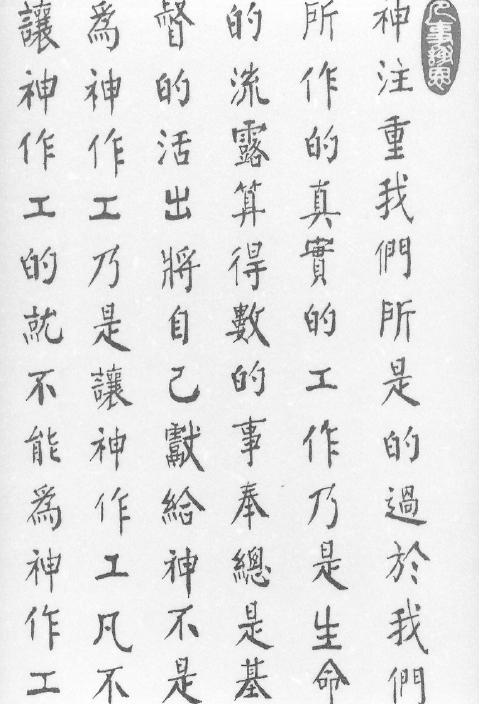 神注重我們所是的過於我們
所作的真實的工作乃是生命
的流露算得數的事奉總是基
督的活出將自己獻給神不是
為神作工乃是讓神作工凡不
讓神作工的就不能為神作工